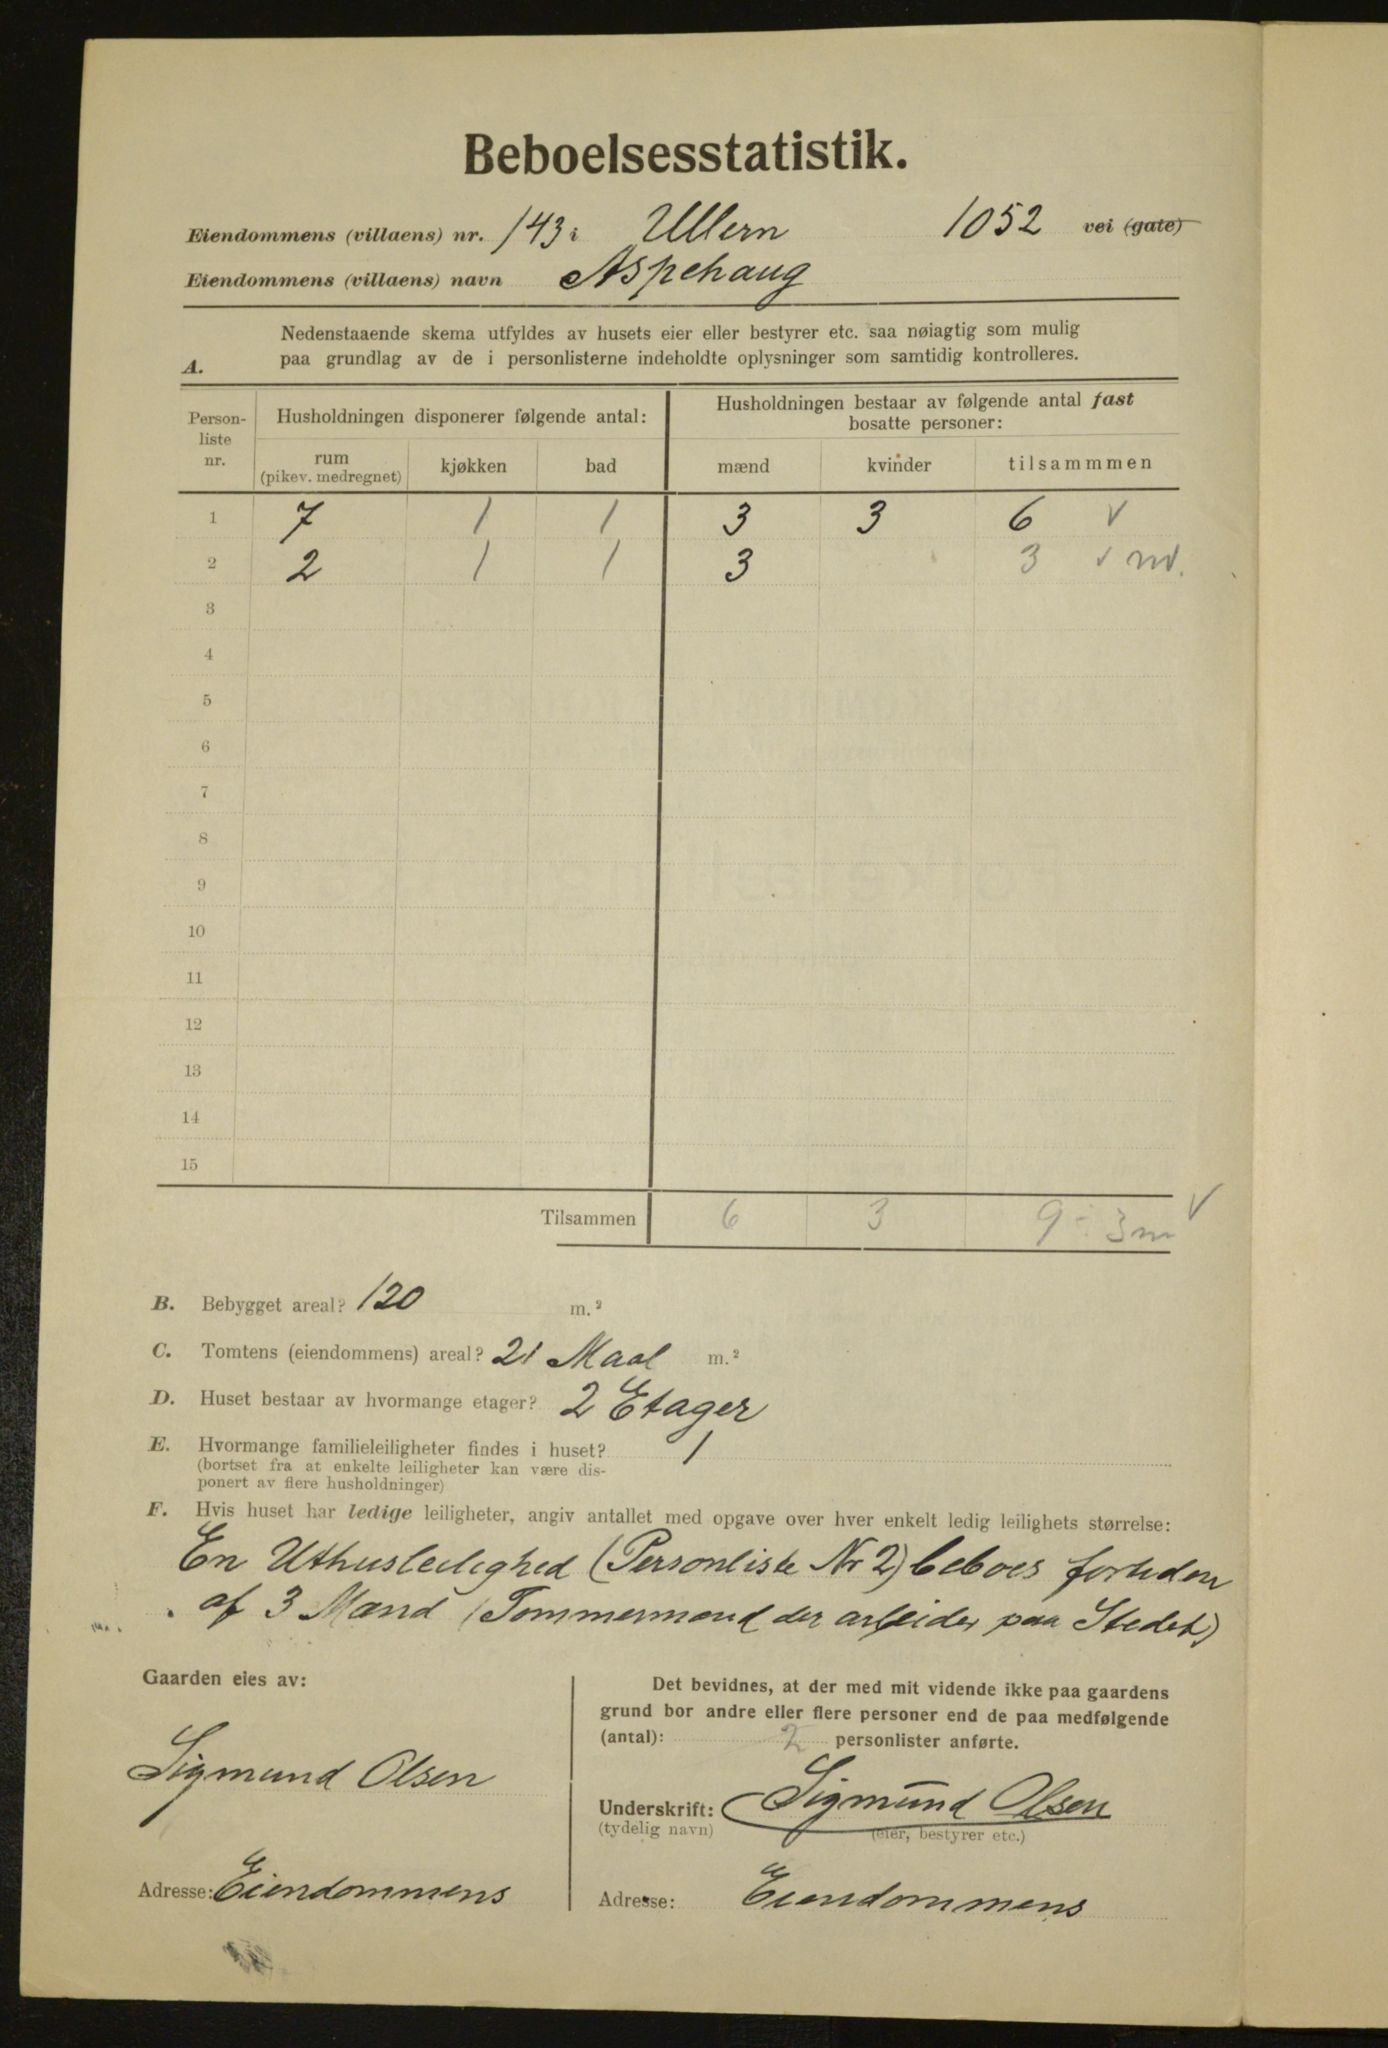 Beboelsesstatistik.
Eiendommens (villaens) nr. 143 i Ullern 1052 vei (gate)
Eiendommens (villaens) navn Aspehaug
Nedenstaaende skema utfyldes av husets eier eller bestyrer etc. saa nøiagtig som mulig
A. paa grundlag av de i personlisterne indeholdte oplysninger som samtidig kontrolleres.
Person-liste nr. Husholdningen disponerer følgende antal: Husholdningen bestaar av følgende antal fast bosatte personer:
rum (pikev. medregnet) kjøkken bad mænd kvinder tilsammmen
1 7 1 1 3 3 6 √
2 2 1 1 3 3 √
3
4
5
6
7
8
9
10
11
12
13
14
15
Tilsammen 6 3 9 ÷ 3m √
B. Bebygget areal? 120 m.²
C. Tomtens (eiendommens) areal? 21 Maal m.²
D. Huset bestaar av hvormange etager? 2 Etager
E. Hvormange familieleiligheter findes i huset? 1
(bortset fra at enkelte leiligheter kan være dis-
ponert av flere husholdninger)
F. Hvis huset har ledige leiligheter, angiv antallet med opgave over hver enkelt ledig leilighets størrelse:
En Uthusleilighed (Personliste Nr 2) beboes fortiden
af 3 Mænd (Tømmermænd der arbeider paa Stedet)
Gaarden eies av:
Sigmund Olsen
Adresse: Eiendommens
Det bevidnes, at der med mit vidende ikke paa gaardens
grund bor andre eller flere personer end de paa medfølgende
(antal): 2 personlister anførte.
Underskrift: Sigmund Olsen
(tydelig navn) (eier, bestyrer etc.)
Adresse: Eiendommens